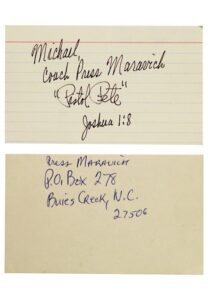 Michael
Coach Press Maravich
"Pistol Pete"
Joshua 1:8
Press Maravich
P.O. Box 278
Buies Creek, N.C.
27506